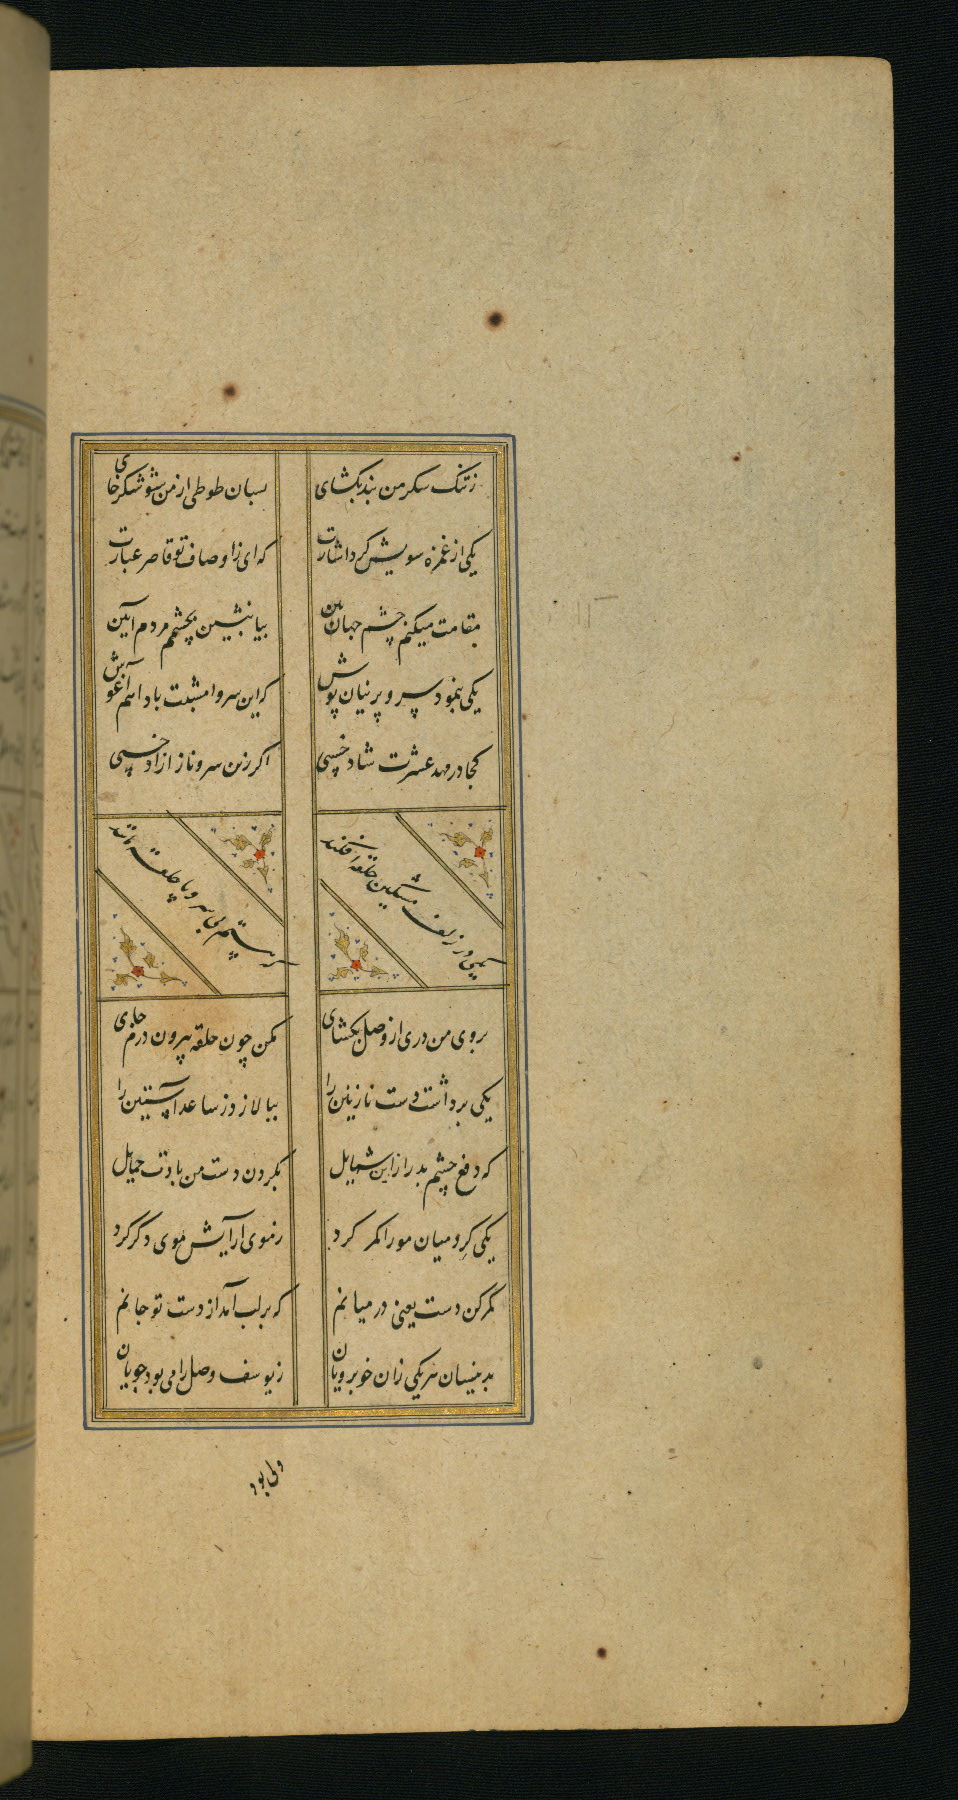 ز تنک شکر من بند بکشای بسان طوطی از من شو شکرخای
یکی از غمزه سویش کرد اشارت که ای ز اوصاف تو قاصر عبارت
مقامت میکنم چشم جهان بین بیا بنشین بچشم مردم آیین
یکی بنمود سرو پرنیان پوش که این سرو امشبت باد اسم آغوش
کجا در مهد عشرت شاد خسپی اکر زین سرو ناز ازاد خسپی
یکی در زلف مشکین حلقه افکند که هستم بی سر و پا حلقه مانند
بروی من دری از وصل بکشای مکن چون حلقه بیرون درم جای
یکی برداشت دست نازنین را ببالا زد ز ساعد آستین را
که دفع چشم بد را زاین شمایل بکردن دست من بادت حمایل
یکی کرد میان مو را کمر کرد ز موی آرایش موی دکر کرد
کمر کن دست یعنی در میانم که بر لب آمد از دست تو جانم
بدینسان هر یکی زان خوبرویان ز یوسف وصل را می بود جویان
ولی بود